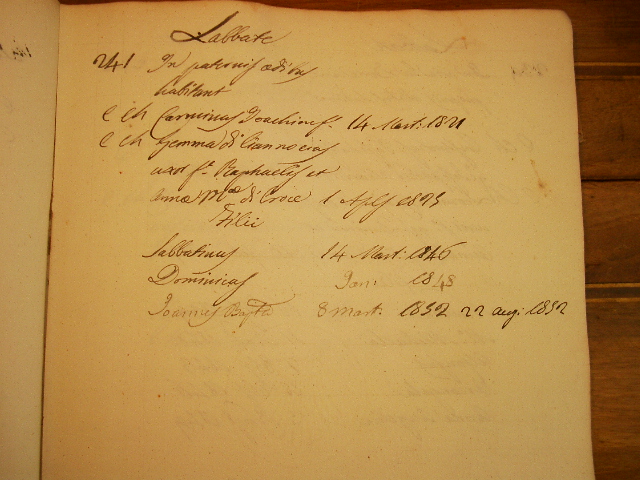 Labbate
241 In paternis ædibus
habitant
c ch Carminus Joachimi f. 14 Mart: 1821
c ch Gemma di Ciannocias
uxor f.ª Raphaelis et
Annæ Mªæ di Croce 1 Aplis 1823
Filii
Sabbatinus 14 Mart: 1846
Dominicus Jan: 1848
Joannes Bapta 8 mart: 1852 22 aug: 1852